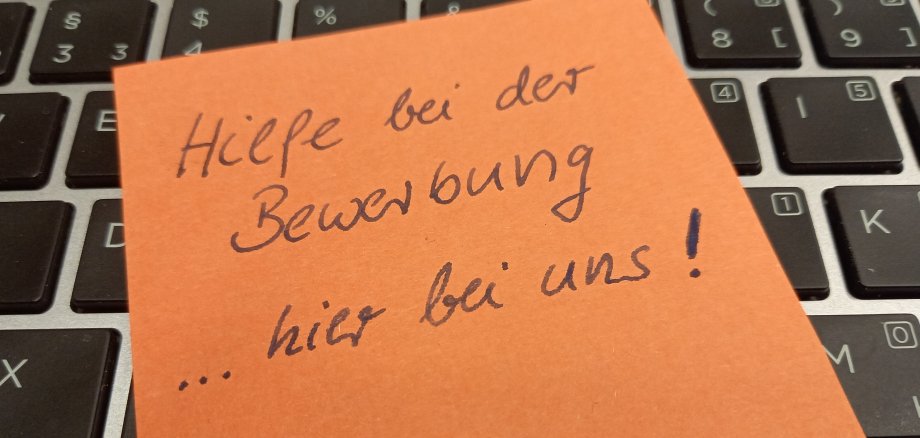 § $ % & ( )
3 3 4 8 [ 9 ]
E 4 I 5
D 1 K
X M 0
Hilfe bei der
Bewerbung
... hier bei uns!